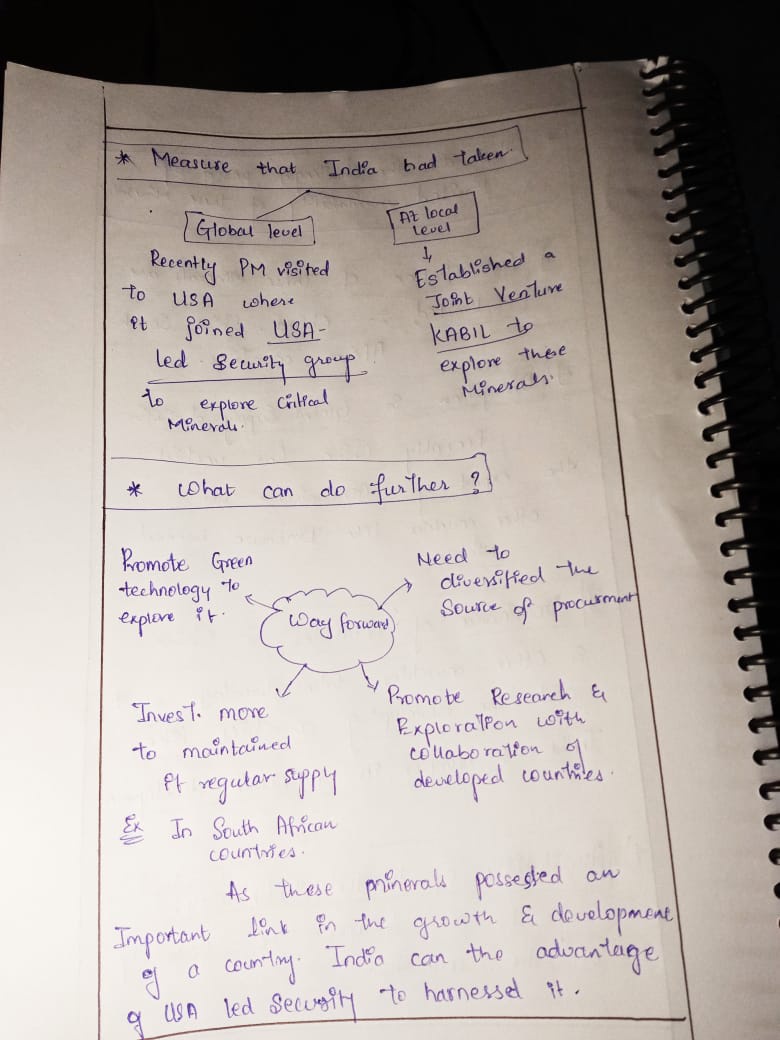 * Measure that India had taken.
Global level
Recently PM visited
to USA where
it joined USA-
led Security group
to explore Critical
Minerals.
At local
level
Established a
Joint Venture
KABIL to
explore these
Minerals.
* What can do further ?
Promote Green
technology to
explore it.
Need to
diversified the
Source of procurment
Way forward
Invest. more
to maintained
it regular supply
Ex In South African
countries.
Promote Research &
Exploration with
collaboration of
developed countries.
As these minerals possested an
Important link in the growth & development
of a country. India can the advantage
of USA led Security to harnessed it.